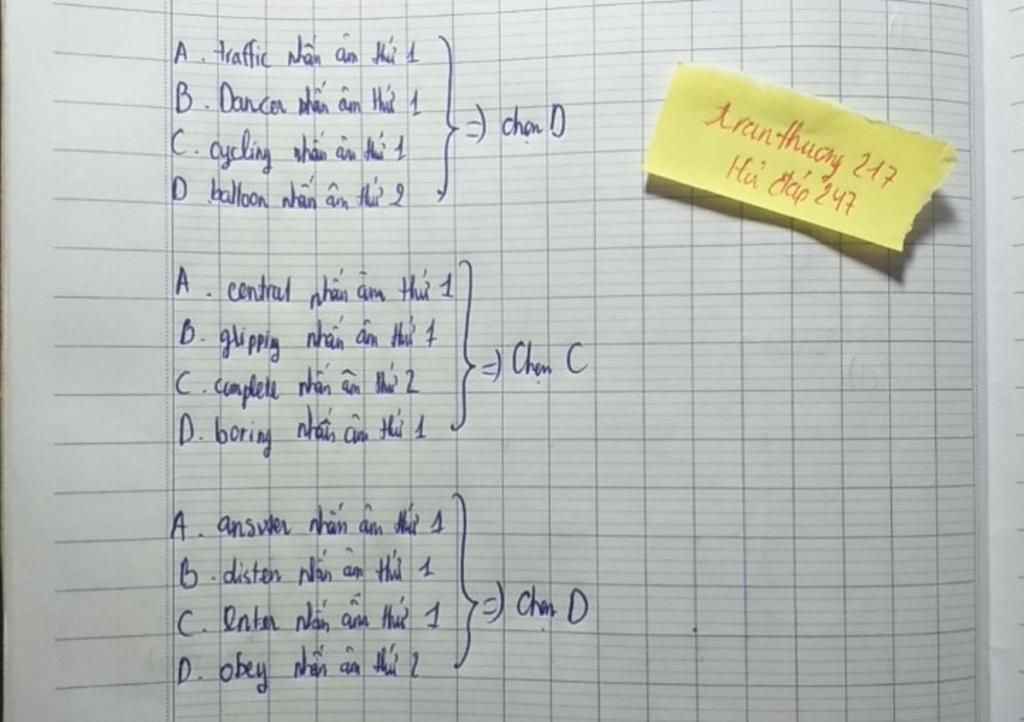 A. traffic nhấn âm thứ 1
B. Dancer nhấn âm thứ 1
C. cycling nhấn âm thứ 1
D balloon nhấn âm thứ 2
=) chọn D
tranthuong 217
Hỏi đáp 247
A. central nhấn âm thứ 1
B. gripping nhấn âm thứ 1
C. complete nhấn âm thứ 2
D. boring nhấn âm thứ 1
=) Chọn C
A. answer nhấn âm thứ 1
B. listen nhấn âm thứ 1
C. Enter nhấn âm thứ 1
D. obey nhấn âm thứ 2
=) Chọn D